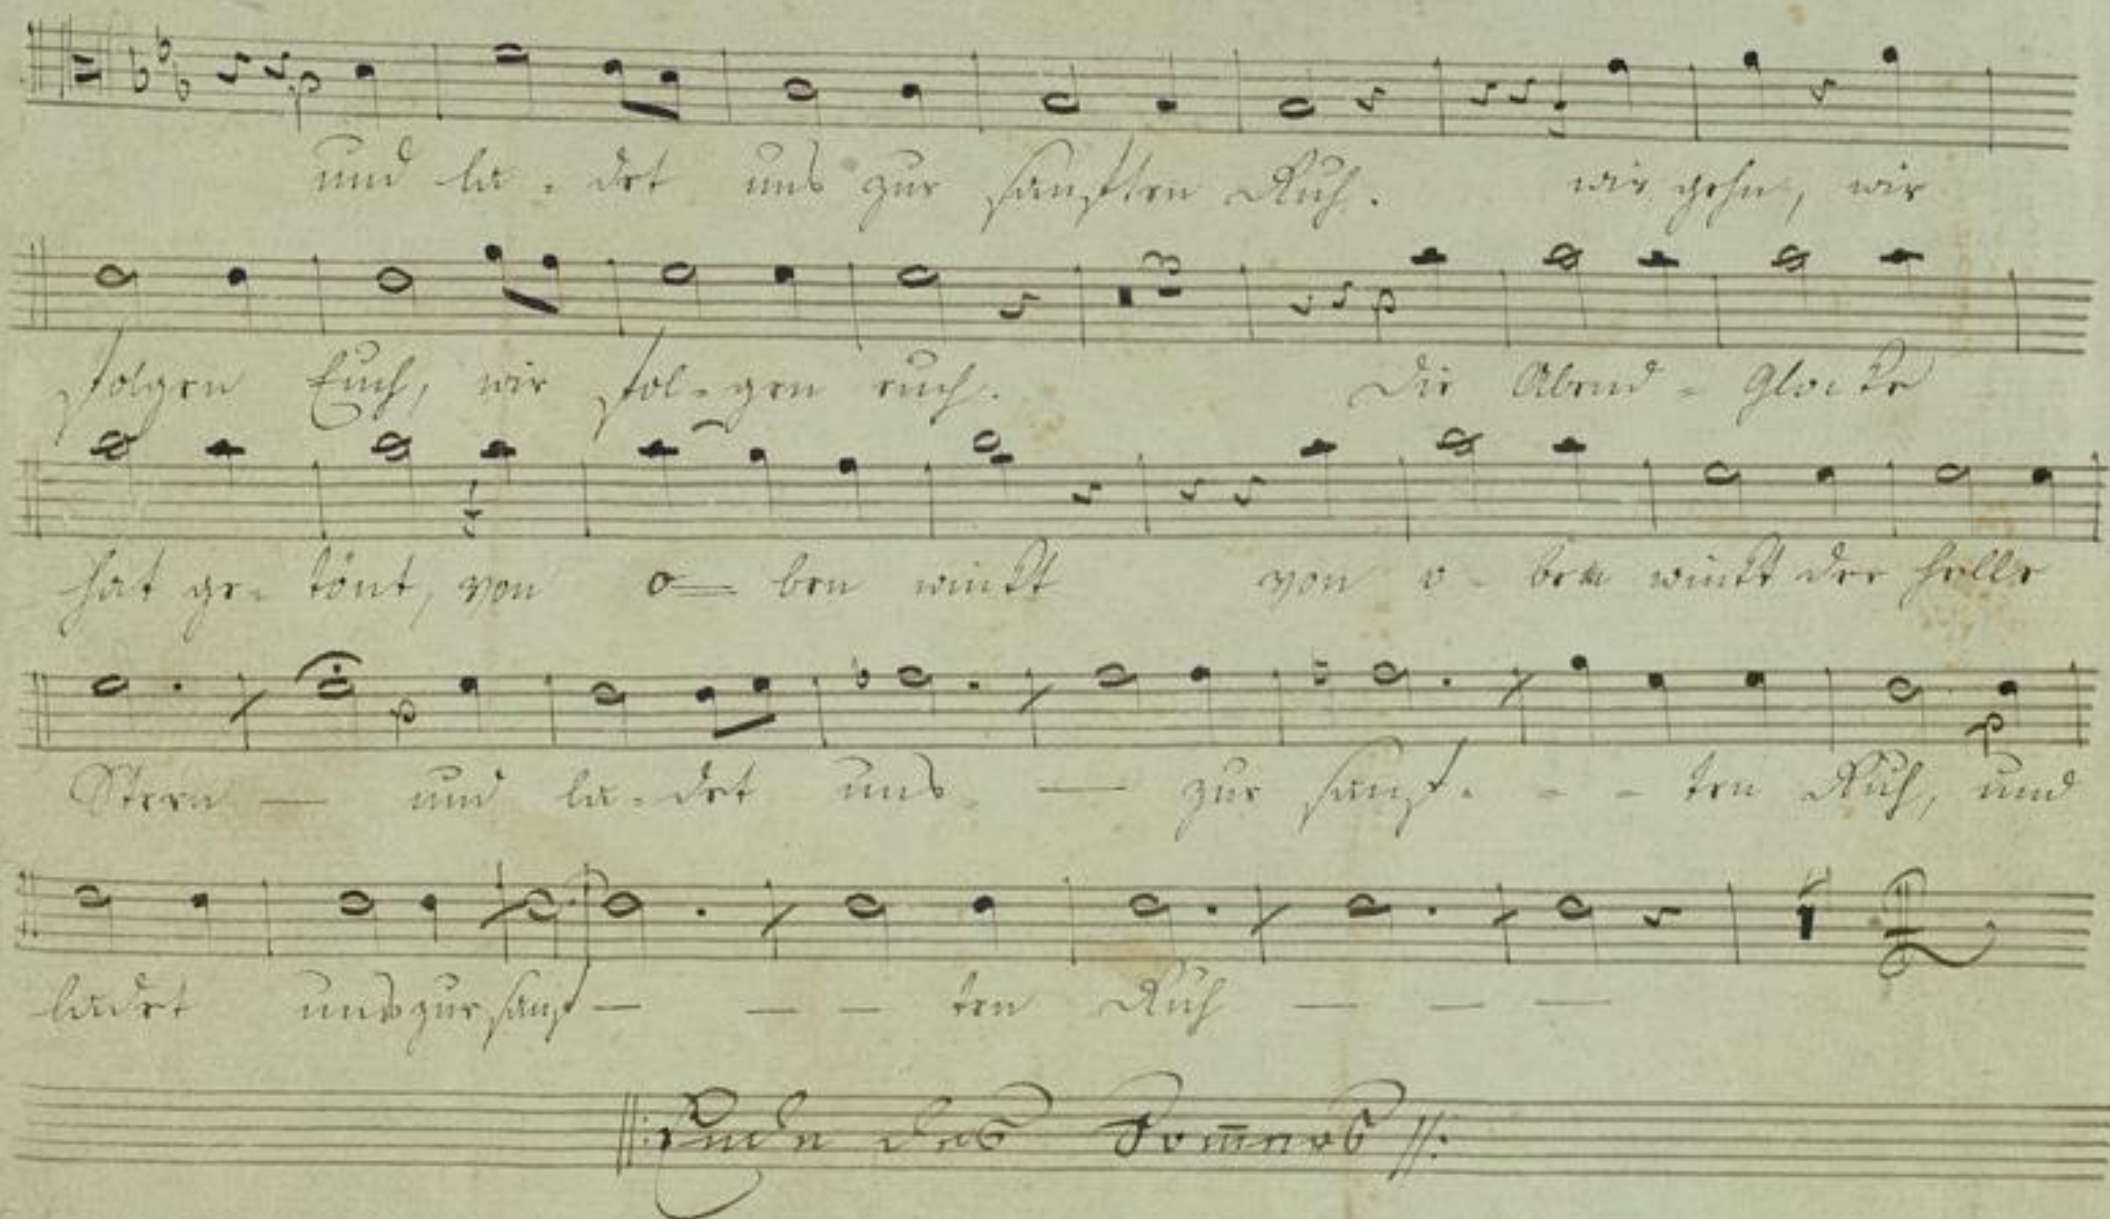 und la - det uns zur sanften Ruh. wir gehn, wir
folgen Euch, wir fol - gen euch. Die Abend - Glocke
hat ge - tönt, von o = ben winkt von o - ben winkt der helle
Stern — und la - det uns — zur sanf - - - ten Ruh, und
ladet uns zur sanf — — — ten Ruh — — —
||: Ende des Som̅ers //: